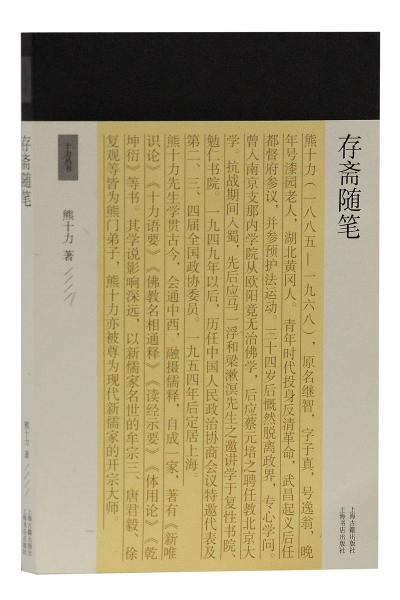 存斋随笔
上海古籍出版社
上海书店出版社
熊十力（一八八五—一九六八），原名继智，字子真，号逸翁，晚
年号漆园老人，湖北黄冈人。青年时代投身反清革命，武昌起义后任
都督府参议，并参预护法运动。三十四岁后慨然脱离政界，专心学问。
曾入南京支那内学院从欧阳竟无治佛学，后应蔡元培之聘任教北京大
学。抗战期间入蜀，先后应马一浮和梁漱溟先生之邀讲学于复性书院、
勉仁书院。一九四九年以后，历任中国人民政治协商会议特邀代表及
第二、三、四届全国政协委员。一九五四年后定居上海。
熊十力先生学贯古今，会通中西，融摄儒释，自成一家，著有《新唯
识论》《十力语要》《佛教名相通释》《读经示要》《体用论》《乾
坤衍》等书，其学说影响深远，以新儒家名世的牟宗三、唐君毅、徐
复观等皆为熊门弟子，熊十力亦被尊为现代新儒家的开宗大师。
十力丛书
熊十力 著
存斋随笔
熊十力 著
上海古籍出版社
上海书店出版社